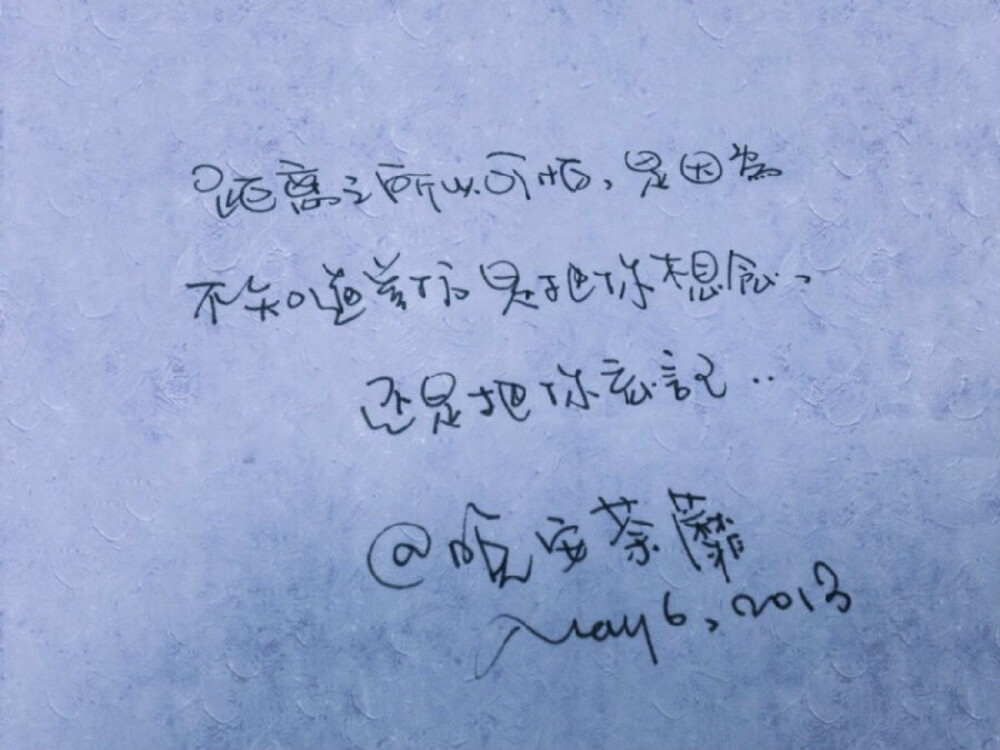 距離之所以可怕，是因為
不知道對方是把你想念、
还是把你忘記..
@晚安荼蘼
May 6, 2013